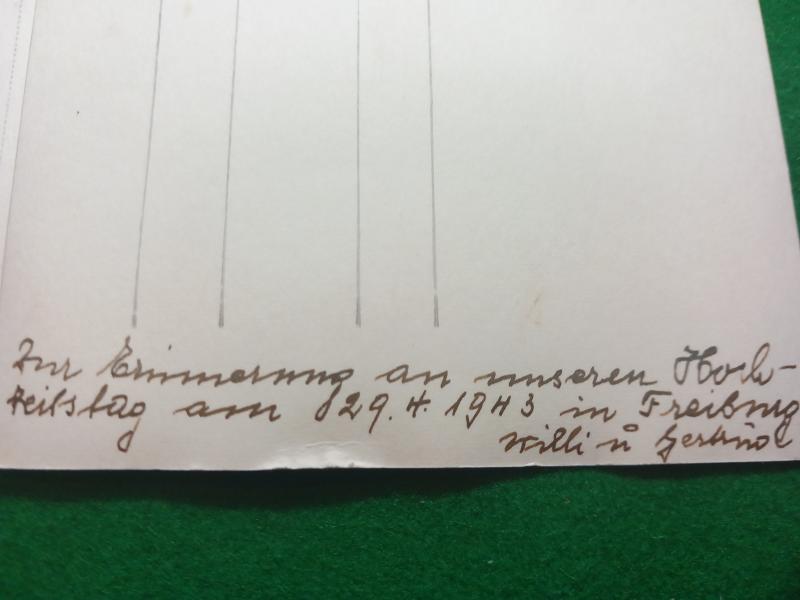 Zur Erinnerung an unseren Hoch-
zeitstag am 29.4.1943 in Freiburg
Willi u Gertrud